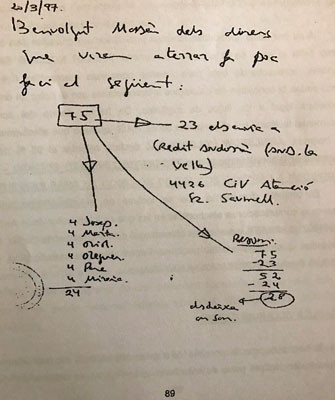 20/3/97.
Benvolgut Mossèn dels diners
que vàrem aterrar fa poc
faci el següent:
75
23 els envia a
Credit Andorrà (AND. la
Vella)
4426 CIV Atenció
Sr.
4 Josep.
4 Marta.
4 Oriol.
4 Oleguer.
4 Pere
4 Mireia.
24
Resum:
75
-23
52
- 24
28
els deixa
on són.
89